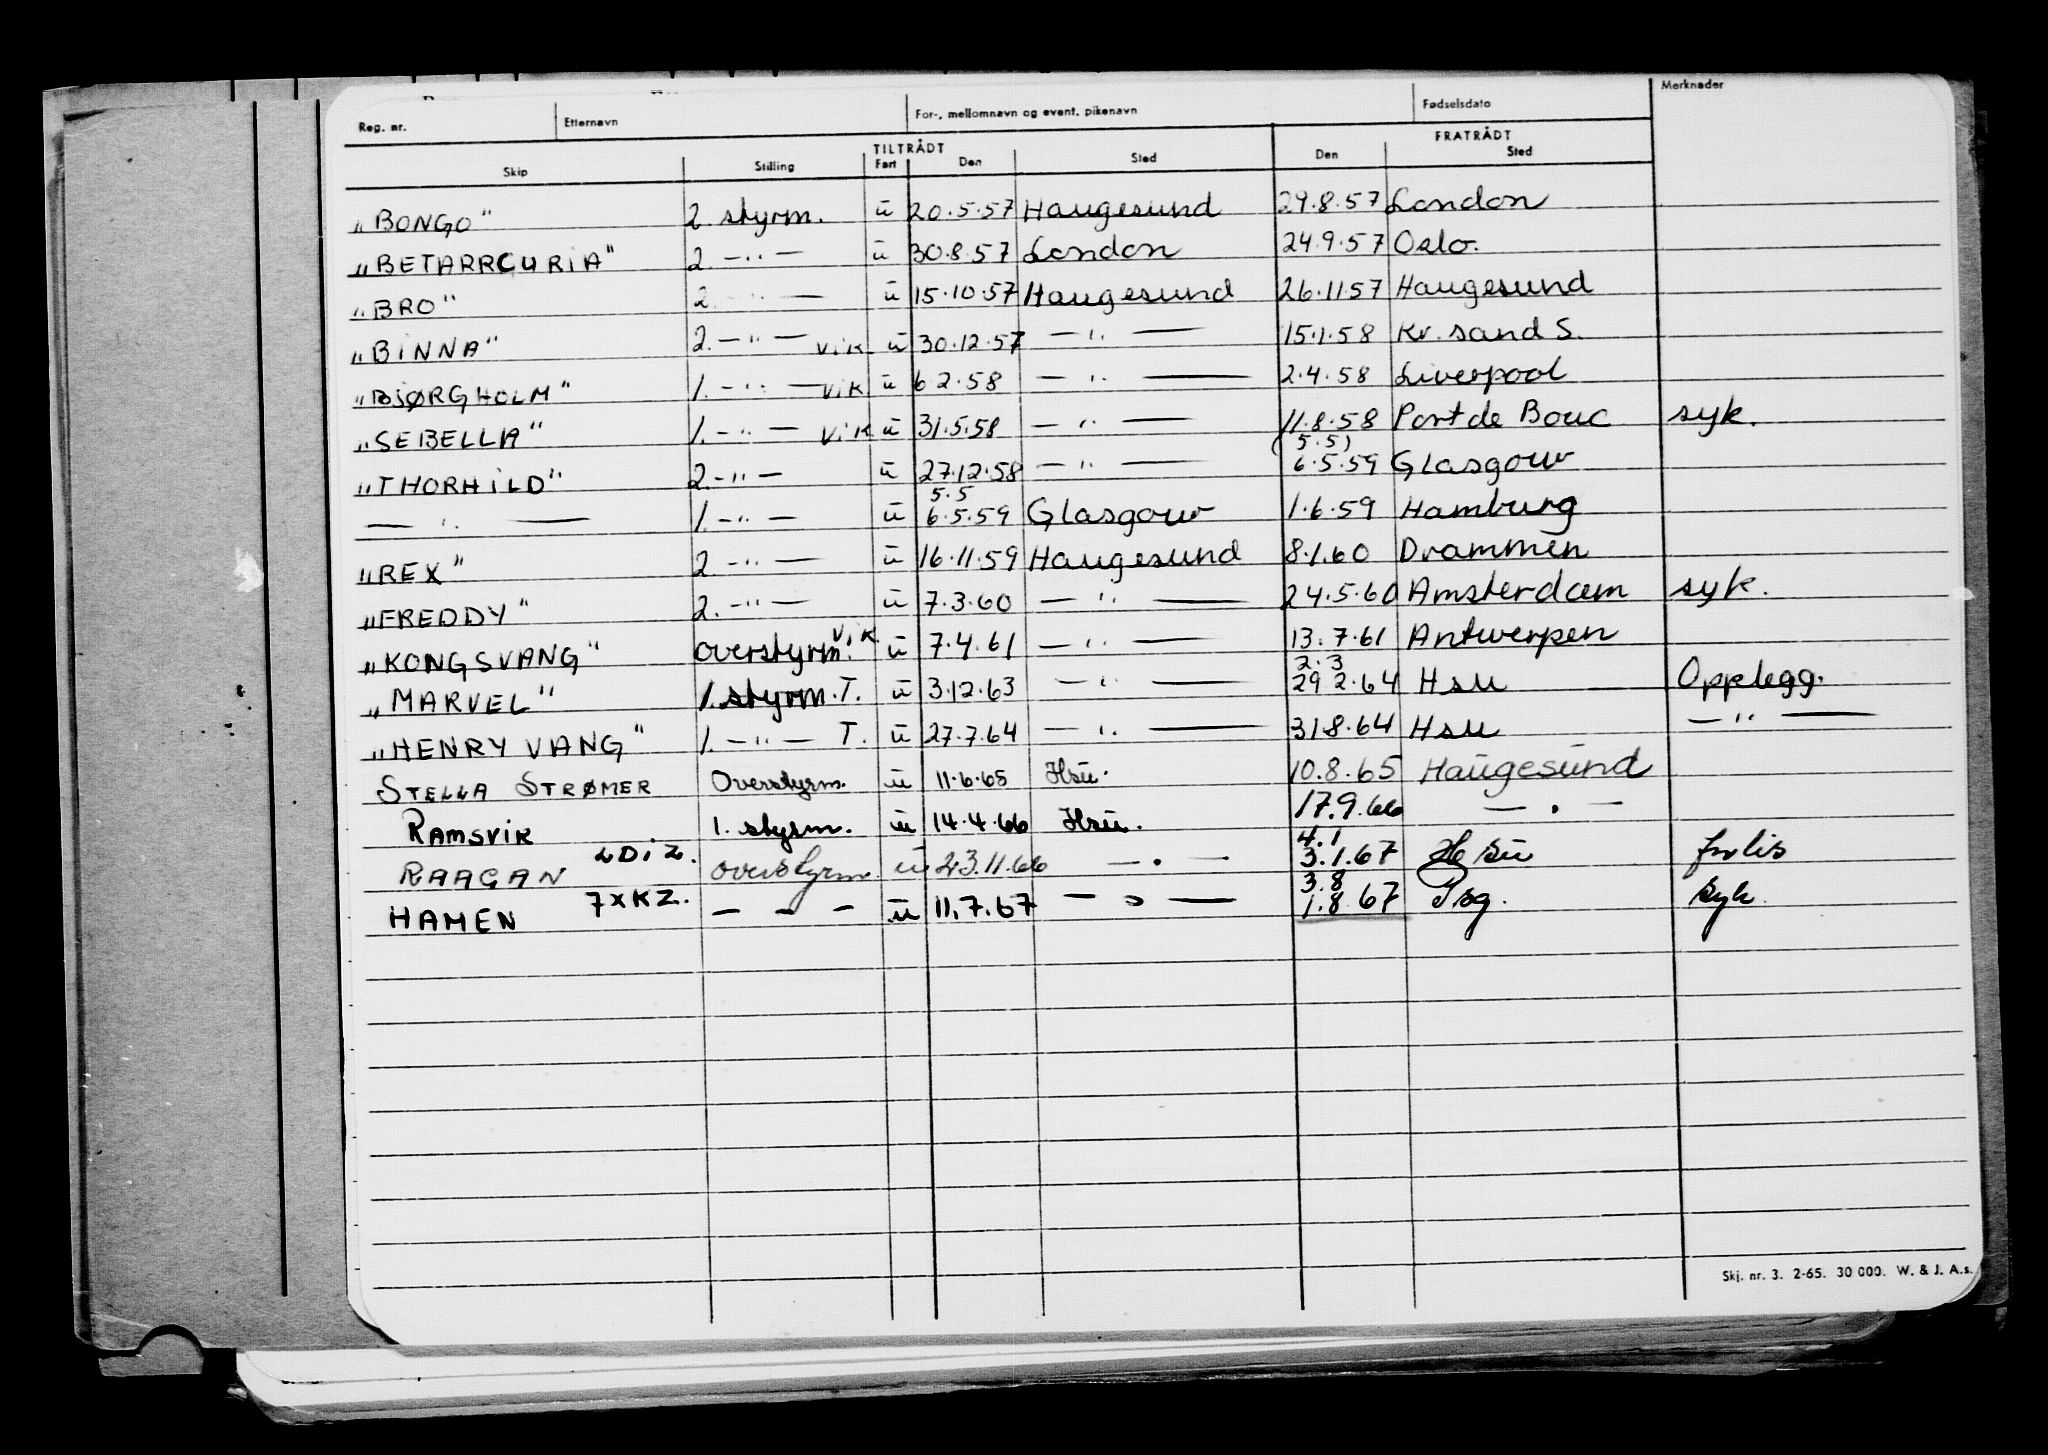 Reg. nr. Etternavn For-, mellomnavn og event. pikenavn Fødselsdato Merknader
TILTRÅDT FRATRÅDT
Skip Stilling Fart Den Sted Den Sted
"BONGO" 2. styrm. u 20.5.57 Haugesund 29.8.57 London
"BETARRCURIA" 2. —"— u 30.8.57 London 24.9.57 Oslo.
"BRO" 2. —"— u 15.10.57 Haugesund 26.11.57 Haugesund
"BINNA" 2. —"— vik. u 30.12.57 —"— 15.1.58 Kr. sand S.
"BJØRGHOLM" 1. —"— vik. u 6.2.58 —"— 2.4.58 Liverpool
"SEBELLA" 1. —"— vik u 31.5.58 —"— 11.8.58 Port de Bouc syk.
(5.5)
"THORHILD" 2. —"— u 27.12.58 —"— 6.5.59 Glasgow
5.5
—"— 1. —"— u 6.5.59 Glasgow 1.6.59 Hamburg
"REX" 2. —"— u 16.11.59 Haugesund 8.1.60 Drammen
"FREDDY" 2. —"— u 7.3.60 —"— 24.5.60 Amsterdam syk.
"KONGSVANG" overstyrm. vik u 7.4.61 —"— 13.7.61 Antwerpen
2.3
"MARVEL" 1. styrm. T. u 3.12.63 —"— 29.2.64 Hsu Opplegg.
"HENRY VANG" 1. —"— T. u 27.7.64 —"— 31.8.64 Hsu —"—
STELLA STRØMER Overstyrm. u 11.6.65 Hsu. 10.8.65 Haugesund
RAMSVIK 1. styrm. u 14.4.66 Hsu. 17.9.66 —.—
4.1
RAAGAN LDIZ. overstyrm. u 23.11.66 —.— 3.1.67 Hsu forlis
3.8
HAMEN 7XKZ. — — — u 11.7.67 — — 1.8.67 Isg. syk.
Skj. nr. 3. 2-65. 30 000. W. & J. A.s.